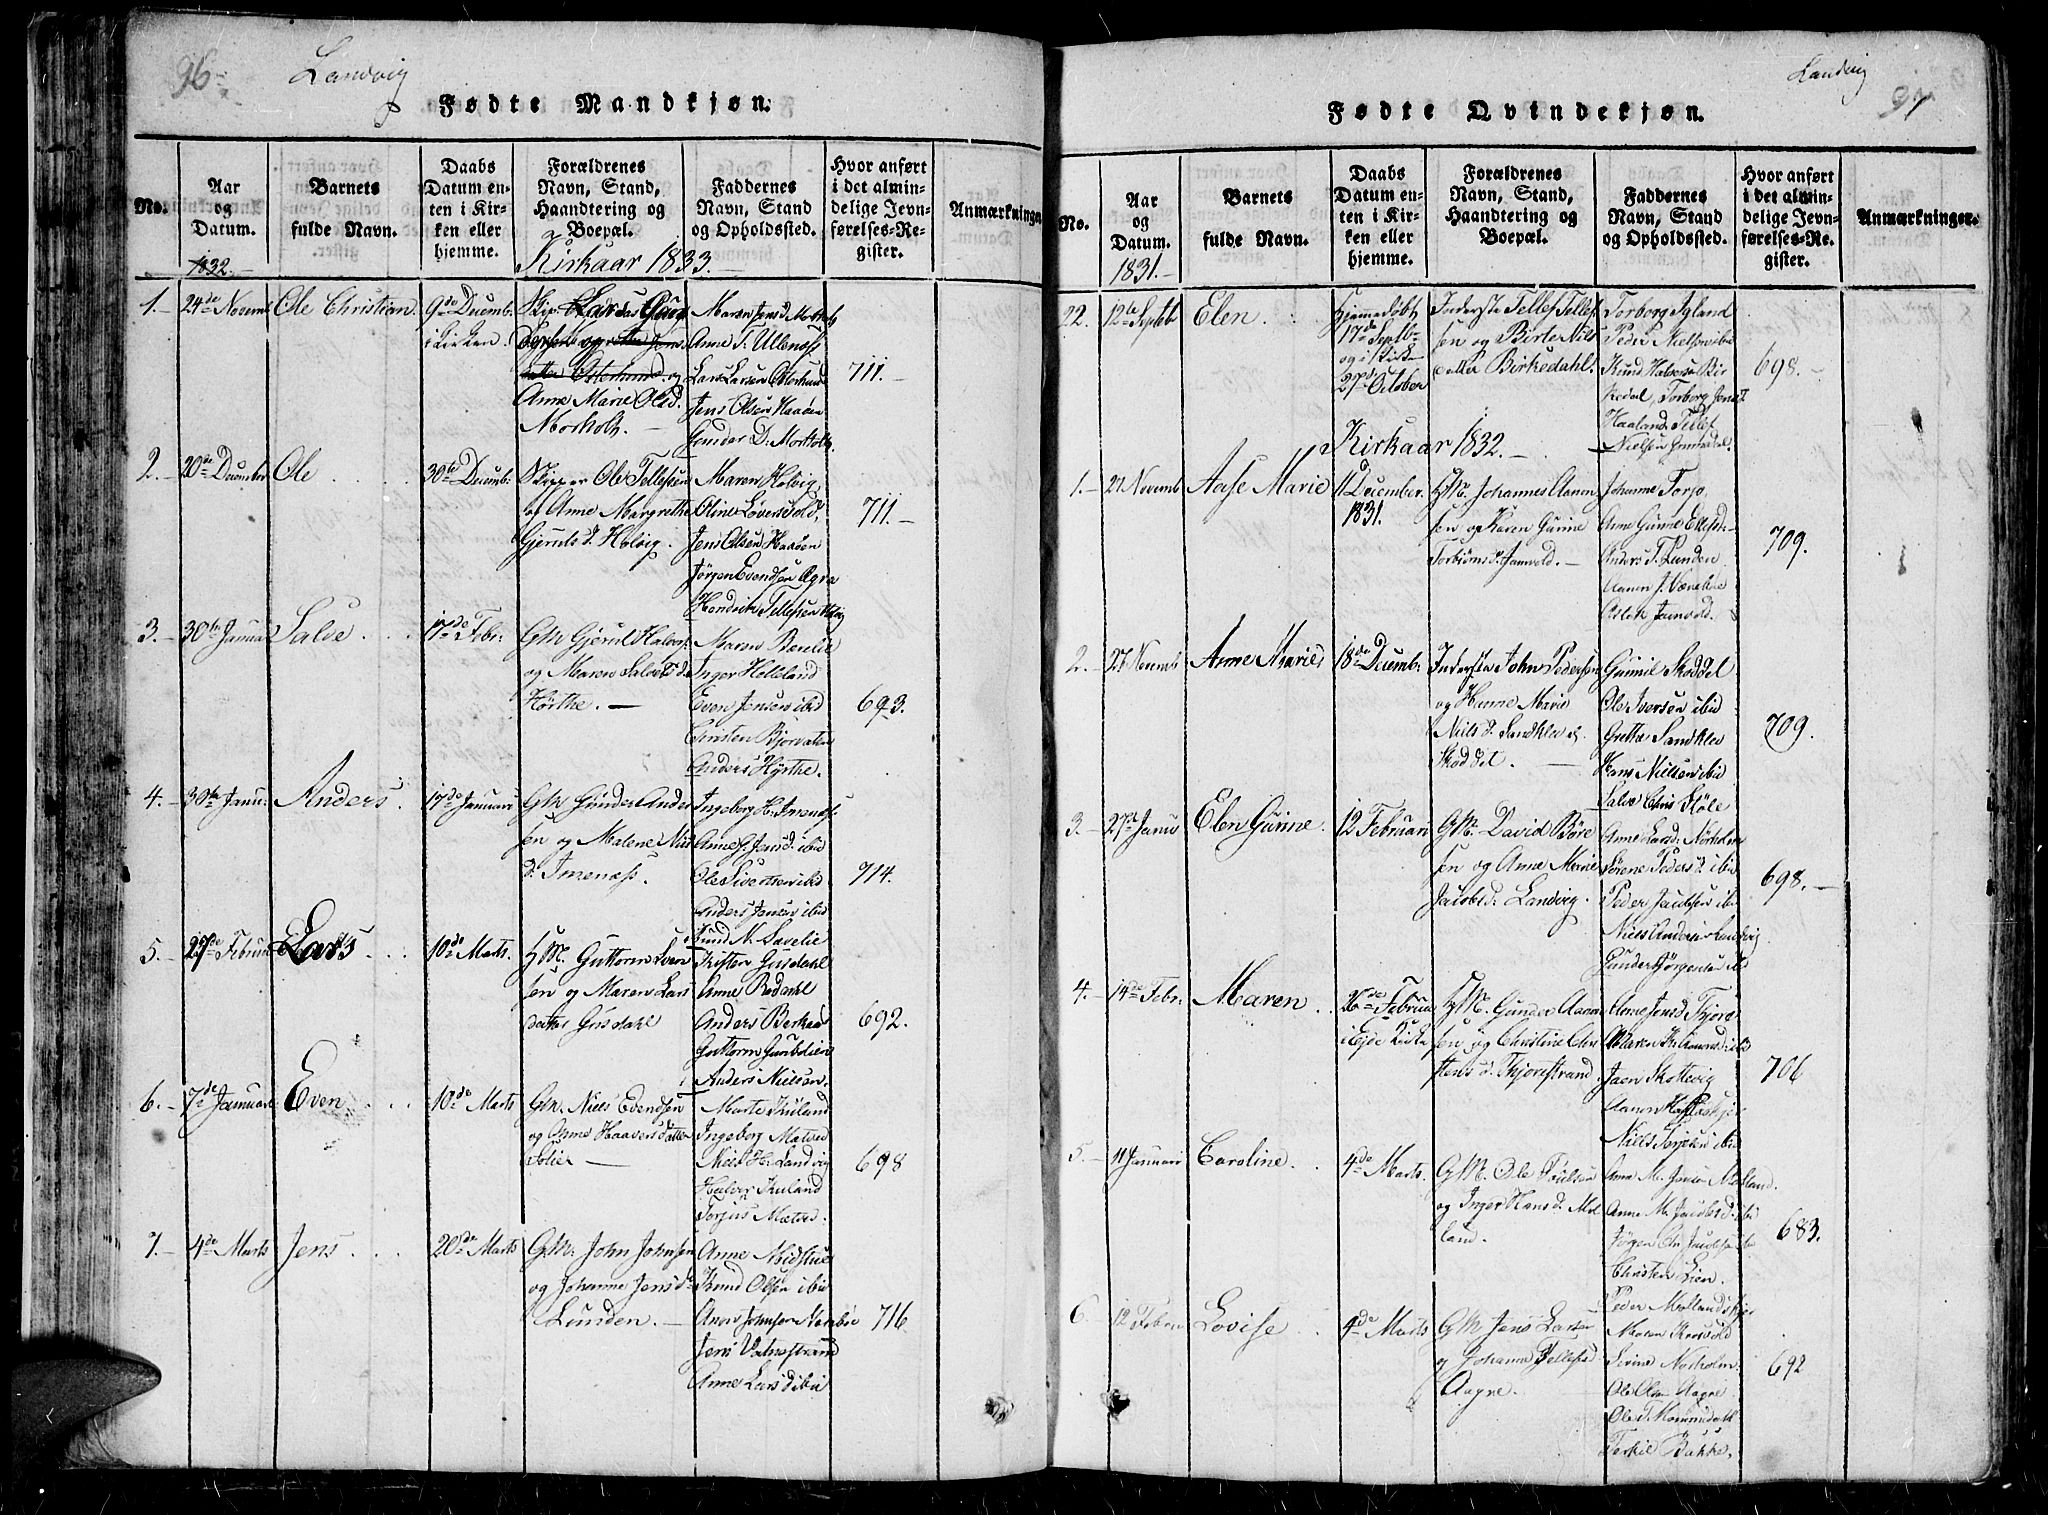 96
Landvig
Fødte Mandkjøn.
No.
Aar
og
Datum.
Barnets
fulde Navn.
Daabs
Datum en-
ten i Kir-
ken eller
hjemme.
Forældrenes
Navn, Stand,
Haandtering og
Boepæl.
Faddernes
Navn, Stand
og Opholdssted.
Hvor anført
i det almin-
delige Jevn-
førelses-Re-
gister.
Anmærkninger
1832.
Kirkaar 1833.
1.
24de Novemb
Ole Christian
9de Decemb.
i Kirken.
Anne Marie Olsd.
Morholt.
Maren Jensd. Morholt
Anne T. Ullenæss
Lars Larsen Osterhund
Jens Olsen Haaøen
Gunder D. Morholt
711.
2.
20de December
Ole
30te Decemb:
Skipper Ole Tellefsen
af Anne Margrethe
Gjeruls d. Holvig.
Maren Holvig
Oline Løversvold,
Jens Olsen Haaøen
Jørgen Evendsen Agre
Hendrik Tellefsen
711.
3.
30te Januar
Salve
17de Febr:
GM Gjerul Halvors.
og Maren Salves d.
Hørthe.
Maren Benelie
Inger Holleland
Even Jensen ibid
Christen Bjorvaten
Anders Hørthe.
693.
4.
30te Janu:
Anders
17de Januari
GM Gunder Ander
sen og Malene Niels
d. Imenæss.
Ingeborg H. Imenæss
Anne G. Jensd. ibid
Ole Sivertsen ibid
Anders Jensen ibid
714.
5.
27de Februar
Lars
10de Marts.
HM. Guttorm Even
sen og Maren Lars
datter Gusdahl
Knud N. Savelie
Kristen Gusdahl
Anne Rodahl
Anders Berkaas
Guttorm Gunbolien
Anders Nielsen.
692.
6.
7de Januari
Even
10de Marts
GM. Niels Evendsen
og Anne Haavers datter
Solie
Marte Kuland
Ingeborg Matved
Niels H. Landvig
Halvor Kuland
Torjus Matved.
698
7.
4de Marts
Jens
20de Marts
GM: John Johnsen
og Johanne Jens d.
Lunden.
Anne Midstue
Knud Olsen ibid
Jens Vatnestrand
Anne Larsd ibid
716

Landvig
97
Fødte Qvindekjøn.
No.
Aar
og
Datum.
Barnets
fulde Navn.
Daabs
Datum en-
ten i Kir-
ken eller
hjemme.
Forældrenes
Navn, Stand,
Haandtering og
Boepæl.
Faddernes
Navn, Stand
og Opholdssted.
Hvor anført
i det almin-
delige Jevn-
førelses-Re-
gister.
Anmærkninger.
1831.
22.
12te Septbr
Elen
Hjemmedøbt
17de Septbr
og i Kirk
27de October
Inderste Tellef Tellef
sen og Birte Nils
datter Birkedahl.
Torborg Igland
Peder Nielsen ibid
Knud Halvorsen Bir
kedal, Torborg Jensd
Haaland Tellef
698.
Kirkaar 1832.
1.
27 Novemb
Aase Marie
11 December
1831.
HM. Johannes Aanon
sen og Karen Gurine
Torbiøns d. Jamvold.
Johanne Torjo
Anne Gurine Ellefsd.
Anders T. Lunden
Aanon J.
Osten Jamvold.
709.
2.
27 Novemb
Anne Marie
18de Decemb:
Inderste John Pedersen
og Hanne Marie
Niels d. Sandklev og
Skoddel.
Gunnil Skoddel
Ole Iversen ibid
Grethe Sandklev
Hans Nielsen ibid
Salve Chris Støle
709.
3.
27de Janu
Elen Gurine.
12 Februari
GM. David Børe
sen og Anne Marie
Jacobsd. Landvig.
Anne Larsd. Norholm
Sørene Peders d. ibid
Peder Jacobsen ibid
Niels Andersen Landvig
Gunder Jørgensen ibid
698.
4.
14de Febr.
Maren
26de Februar
i Eide Kirke
HM. Gunder Aanon
sen og Christine Chri
stens d. Thjorestrand.
Anne Jensd Tjore
Maren ibid
Jaen Skottevig
Niels Terjesen ibid
706
5.
11 Januari
Caroline.
4de Marts.
GM. Ole Poulsen
og Inger Hans d. Mol
land.
Anne M. Jensen Molland.
Anne M. Jacobsd. ibid
Jørgen Chr. Jacobsen ibid
Christen Lien.
683.
6
12 Febru
Lovise
4de Marts
GM Jens Larsen
og Johanne Tellefsd
Aagre.
Maren Korsvold
Sørine Norholm
Ole Olsen Aagre
Terkil Bakke.
692